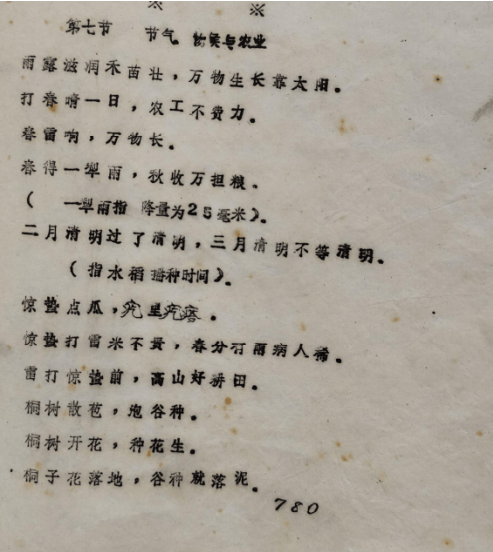 ※ ※
第七节 节气、物候与农业
雨露滋润禾苗壮，万物生长靠太阳。
打春晴一日，农工不费力。
春雷响，万物长。
春得一犁雨，秋收万担粮。
（ 一犁雨指 降量为25毫米）。
二月清明过了清明，三月清明不等清明。
（指水稻播种时间）。
惊蛰点瓜，兜里兜
惊蛰打雷米不贵，春分有雨病人稀。
雷打惊蛰前，高山好耕田。
桐树散苞，泡谷种。
桐树开花，种花生。
桐子花落地，谷种就落泥。
780